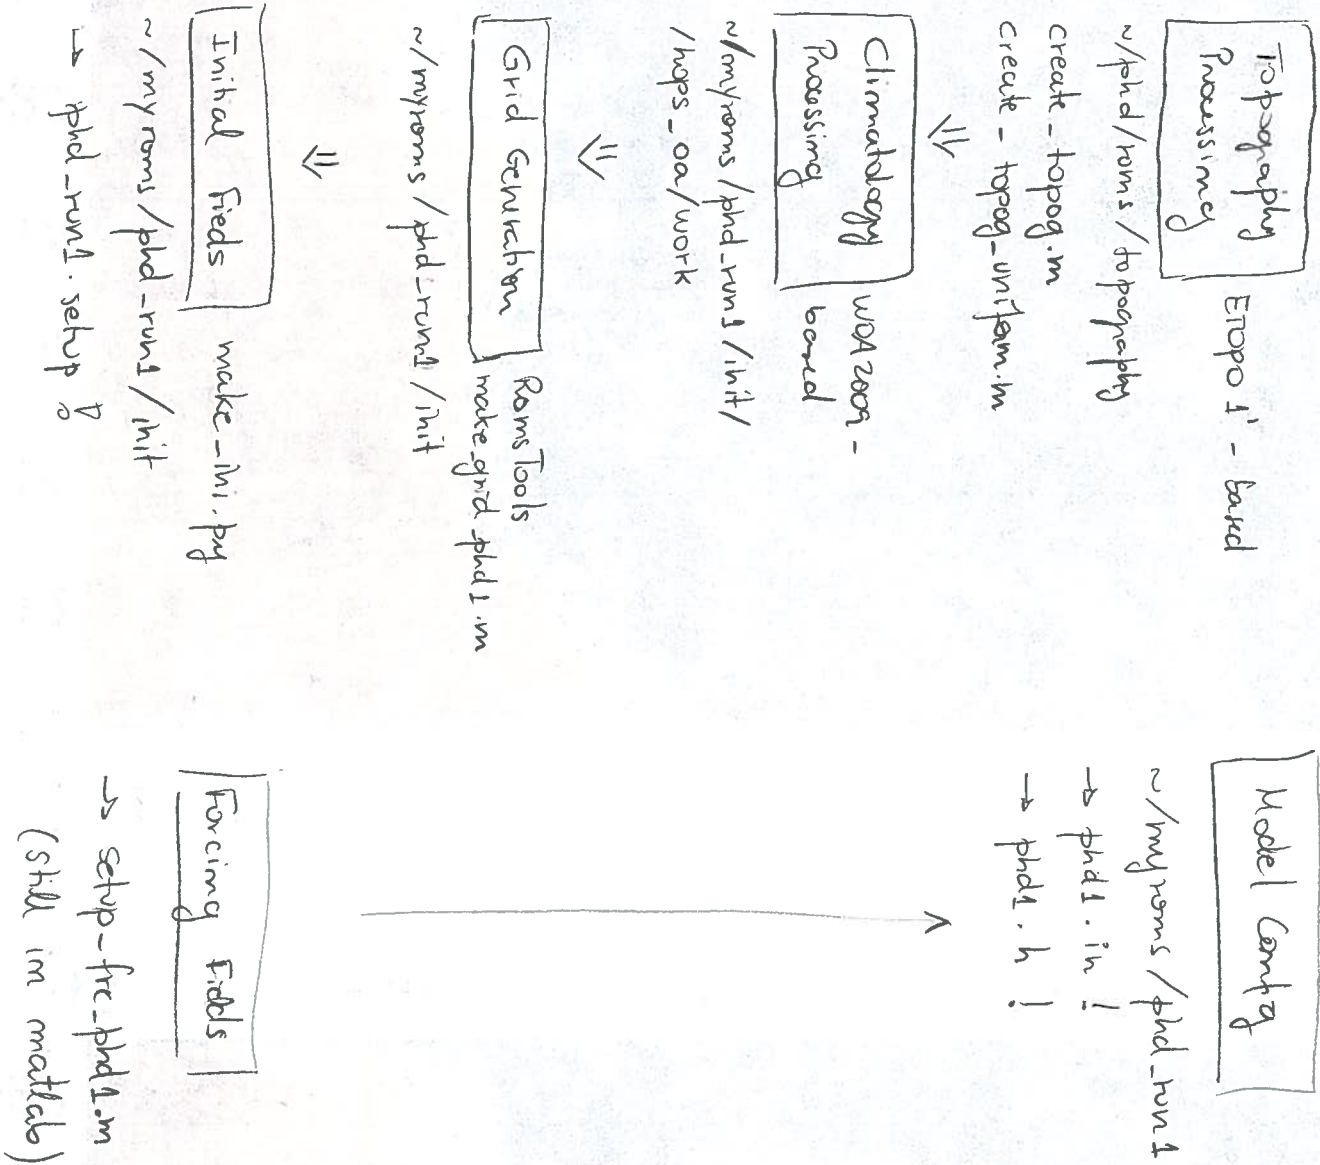 Topography
Processing
ETOPO 1' - based
~/phd/roms/topography
create_topog.m
create_topog_uniform.m
⇓
Climatology
Processing
WOA2009 -
based
~/myroms/phd_run1/init/
/hops_oa/work
⇓
Grid Generation
RomsTools
make_grid_phd1.m
~/myroms/phd_run1/init
⇓
Initial Fieds
make_ini.py
~/myroms/phd_run1/init
→ phd_run1.setup
Model Config
~/myroms/phd_run1
→ phd1.in !
→ phd1.h !
Forcing Fields
→ setup_frc_phd1.m
(still in matlab)